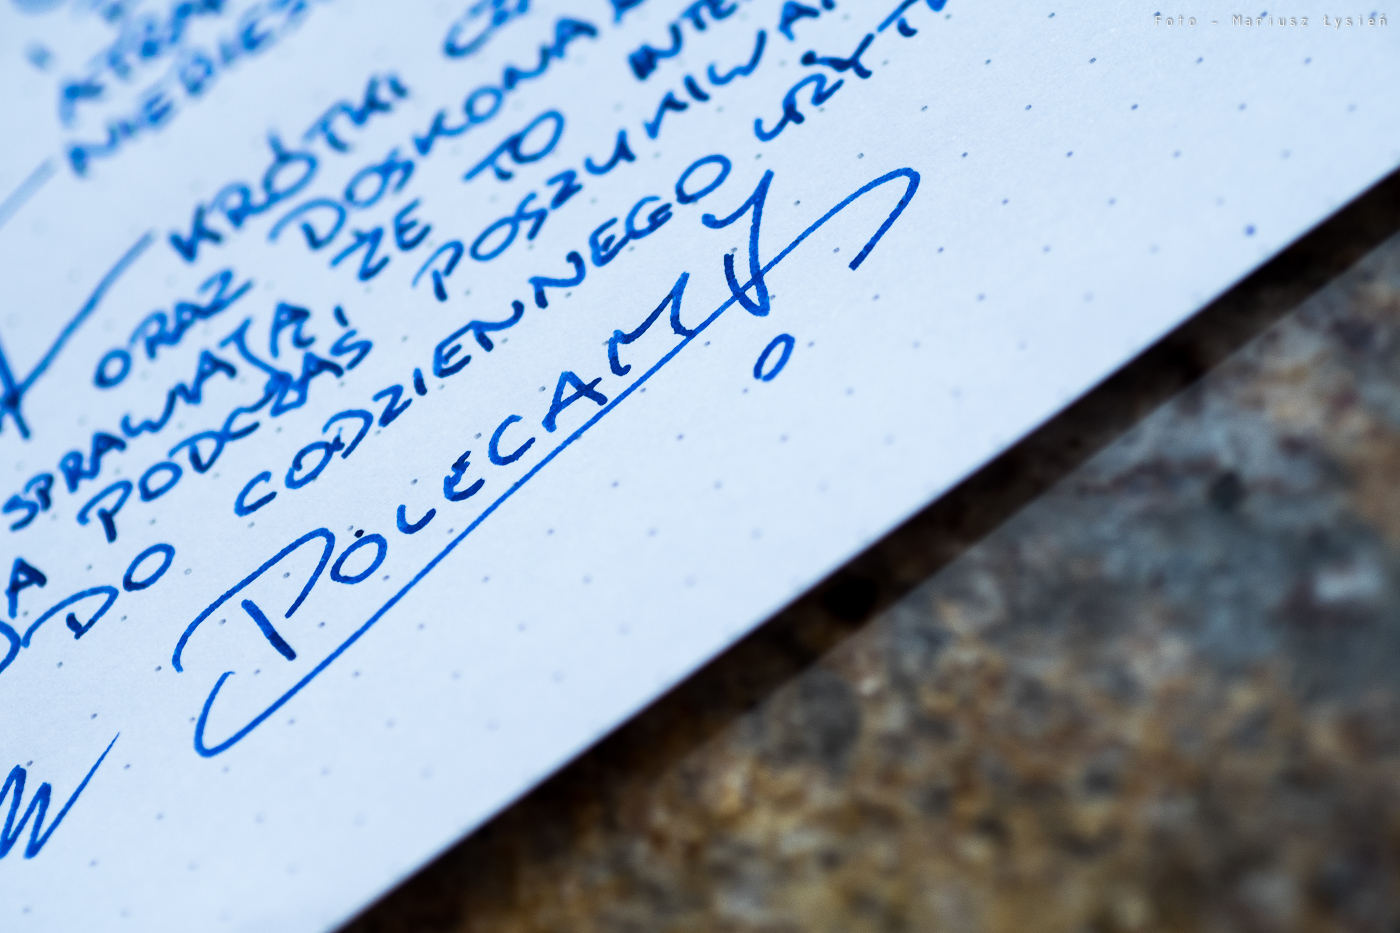 Foto - Mariusz Łysień
ATRAM
NIEBIES
KRÓTKI CZ
ORAZ DOSKONA
SPRAWIAJĄ, ŻE TO INTE
A PODCZAS POSZUKIWA
DO CODZIENNEGO UŻYT
POLECAMY!